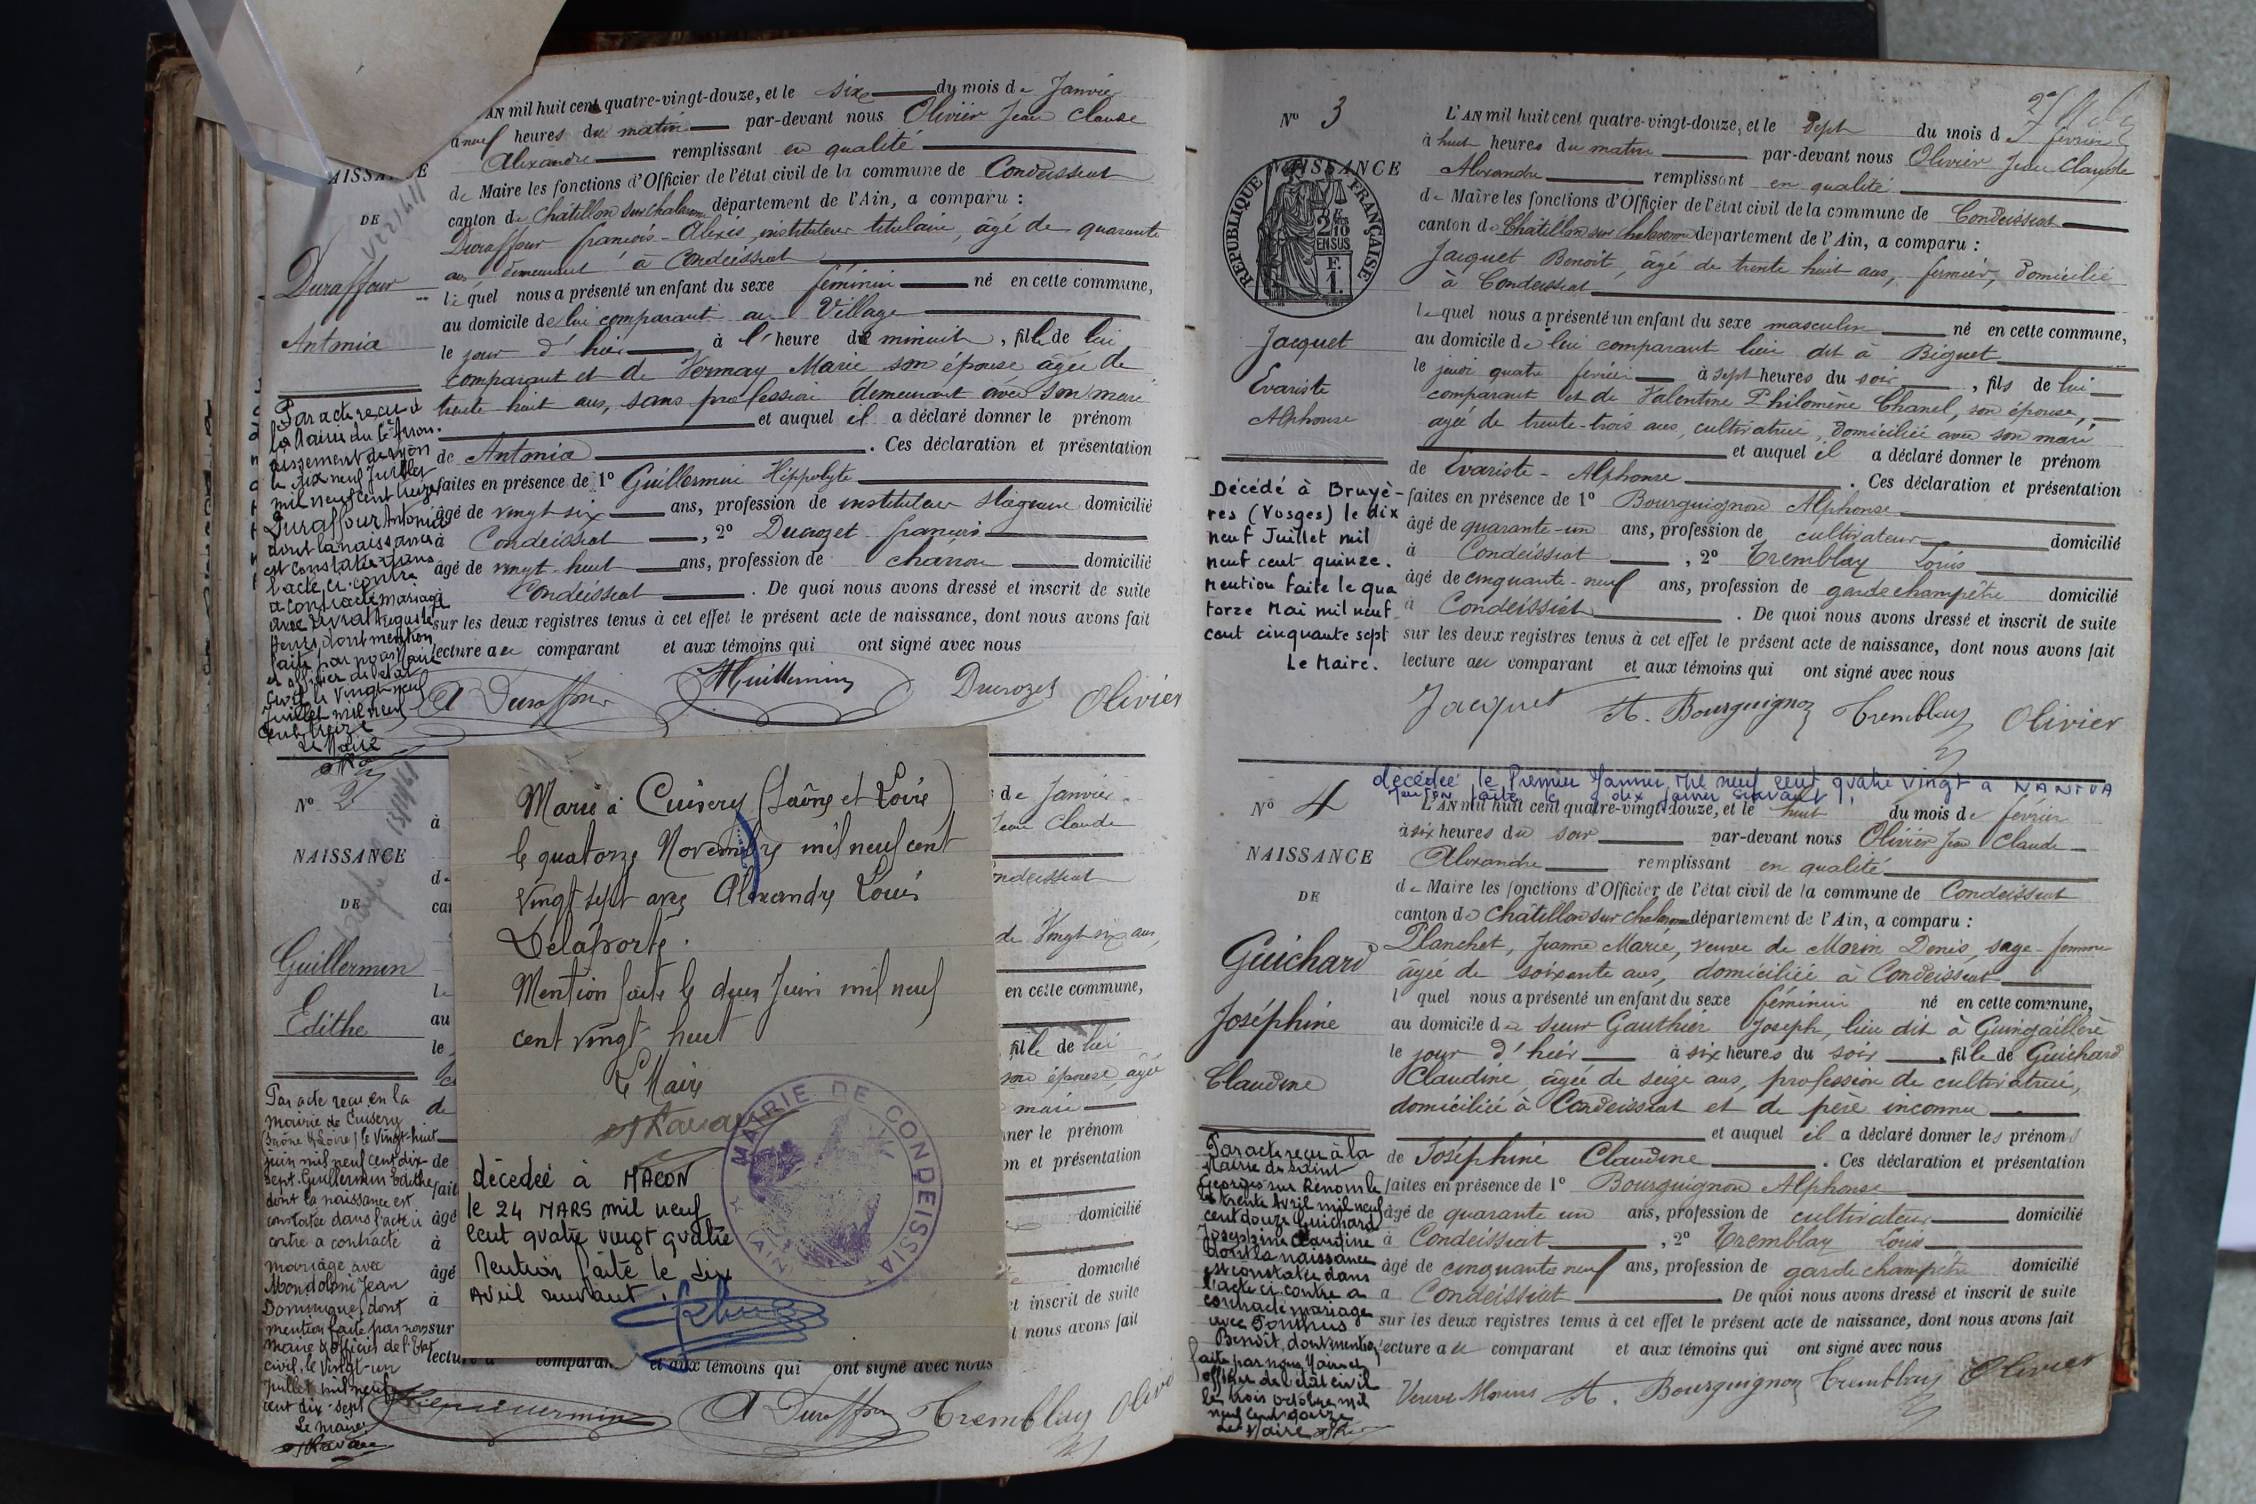 AN mil huit cent quatre-vingt-douze, et le six du mois de Janvier
à neuf heures du matin par-devant nous Olivier Jean Claude
Alexandre remplissant en qualité
de Maire les fonctions d'Officier de l'état civil de la commune de Condeissiat
canton de Châtillon sur Chalaronne département de l'Ain, a comparu :
Duraffour françois-Alexis, instituteur titulaire, âgé de quarante
ans demeurant à Condeissiat
lequel nous a présenté un enfant du sexe féminin né en cette commune,
au domicile de lui comparant au Village
le jour d'hier à l'heure de minuit, fille de lui
comparant et de Vermay Marie son épouse âgée de
trente huit ans, sans profession demeurant avec son mari
et auquel il a déclaré donner le prénom
de Antonia. Ces déclaration et présentation
faites en présence de 1º Guillermin Hippolyte
âgé de vingt six ans, profession de instituteur stagiaire domicilié
à Condeissiat, 2º Ducrozet françois
âgé de vingt-huit ans, profession de charron domicilié
Condeissiat. De quoi nous avons dressé et inscrit de suite
sur les deux registres tenus à cet effet le présent acte de naissance, dont nous avons fait
lecture au comparant et aux témoins qui ont signé avec nous
A Duraffour HGuillermin Ducrozet Olivier
DE
Duraffour
Antonia
Par acte reçu à
la Mairie du 6e Arron-
dissement de Lyon
le dix neuf Juillet
mil neuf cent treize
Duraffour Antonia
dont la naissance
est constatée dans
l'acte ci-contre
a contracté mariage
avec Auguste
Henri, dont mention
faite par nous Maire
et officier de l'état
civil le vingt-neuf
Juillet mil neuf
cent treize
Le Maire
Nº 2
NAISSANCE
DE
Guillermin
Edithe
Par acte reçu en la
mairie de Cuisery
(Saône & Loire) le vingt-huit
juin mil neuf cent dix-
sept. Guillermin Edithe
dont la naissance est
constatée dans l'acte ci
contre a contracté
mariage avec
Mondoloni Jean
Dominique, dont
mention faite par nous
Maire & officier de l'Etat
civil, le vingt-un
Juillet mil neuf
cent dix-sept
Le maire
Marié à Cuisery (Saône et Loire)
le quatorze Novembre mil neuf cent
vingt sept avec Alexandre Louis
Delaporte.
Mention faite le deux Juin mil neuf
cent vingt huit
Le Maire
MAIRIE DE CONDEISSIAT (AIN)
décédée à MACON
le 24 MARS mil neuf
cent quatre vingt quatre
Mention faite le dix
Avril suivant.
de Janvier
Jean Claude
Condeissiat
de Vingt six ans,
en cette commune,
fille de lui
son épouse, âgée
mari
donner le prénom
et présentation
domicilié
domicilié
et inscrit de suite
nous avons fait
lecture comparant et aux témoins qui ont signé avec nous
A Duraffour Tremblay Olivier
Nº 3
NAISSANCE
RÉPUBLIQUE FRANÇAISE
2/10
EN SUS
F.
1.
Jacquet
Evariste
Alphonse
Décédé à Bruyè-
res (Vosges) le dix
neuf Juillet mil
neuf cent quinze.
Mention faite le qua
torze Mai mil neuf
cent cinquante sept
Le Maire.
L'AN mil huit cent quatre-vingt-douze, et le sept du mois de février
à huit heures du matin par-devant nous Olivier Jean Claude
Alexandre remplissant en qualité
de Maire les fonctions d'Officier de l'état civil de la commune de Condeissiat
canton de Châtillon sur Chalaronne département de l'Ain, a comparu :
Jacquet Benoît, âgé de trente huit ans, fermier, domicilié
à Condeissiat
lequel nous a présenté un enfant du sexe masculin né en cette commune,
au domicile de lui comparant lieu dit à Biguet
le jeudi quatre février à sept heures du soir, fils de lui
comparant et de Valentine Philomène Chanel, son épouse,
âgée de trente-trois ans, cultivatrice, domiciliée avec son mari
et auquel il a déclaré donner le prénom
de Evariste-Alphonse. Ces déclaration et présentation
faites en présence de 1º Bourguignon Alphonse
âgé de quarante-un ans, profession de cultivateur domicilié
à Condeissiat, 2º Tremblay Louis
âgé de cinquante-neuf ans, profession de garde champêtre domicilié
à Condeissiat. De quoi nous avons dressé et inscrit de suite
sur les deux registres tenus à cet effet le présent acte de naissance, dont nous avons fait
lecture au comparant et aux témoins qui ont signé avec nous
Jacquet A. Bourguignon Tremblay Olivier
décédée le Premier Janvier mil neuf cent quatre vingt à NANTUA
mention faite le dix Janvier suivant.
Nº 4
NAISSANCE
DE
Guichard
Joséphine
Claudine
Par acte reçu à la
Mairie de Saint
Georges sur Renom le
trente Avril mil neuf
cent douze Guichard
Joséphine Claudine
dont la naissance
est constatée dans
l'acte ci-contre a
contracté mariage
avec
Benoît, dont mention
faite par nous Maire et
officier de l'état civil
le trois octobre mil
neuf cent douze
Le Maire
L'AN mil huit cent quatre-vingt-douze, et le huit du mois de février
à six heures du soir par-devant nous Olivier Jean Claude
Alexandre remplissant en qualité
de Maire les fonctions d'Officier de l'état civil de la commune de Condeissiat
canton de Châtillon sur Chalaronne département de l'Ain, a comparu :
Planchet, Jeanne Marie, veuve de Morin Denis, sage-femme
âgée de soixante ans, domiciliée à Condeissiat
l quel nous a présenté un enfant du sexe féminin né en cette commune,
au domicile de sieur Gauthier Joseph, lieu dit à
le jour d'hier à six heures du soir, fille de Guichard
Claudine, âgée de seize ans, profession de cultivatrice,
domiciliée à Condeissiat et de père inconnu
et auquel il a déclaré donner les prénoms
de Joséphine Claudine. Ces déclaration et présentation
faites en présence de 1º Bourguignon Alphonse
âgé de quarante un ans, profession de cultivateur domicilié
à Condeissiat, 2º Tremblay Louis
âgé de cinquante neuf ans, profession de garde champêtre domicilié
à Condeissiat De quoi nous avons dressé et inscrit de suite
sur les deux registres tenus à cet effet le présent acte de naissance, dont nous avons fait
lecture au comparant et aux témoins qui ont signé avec nous
Veuve Morin A. Bourguignon Tremblay Olivier